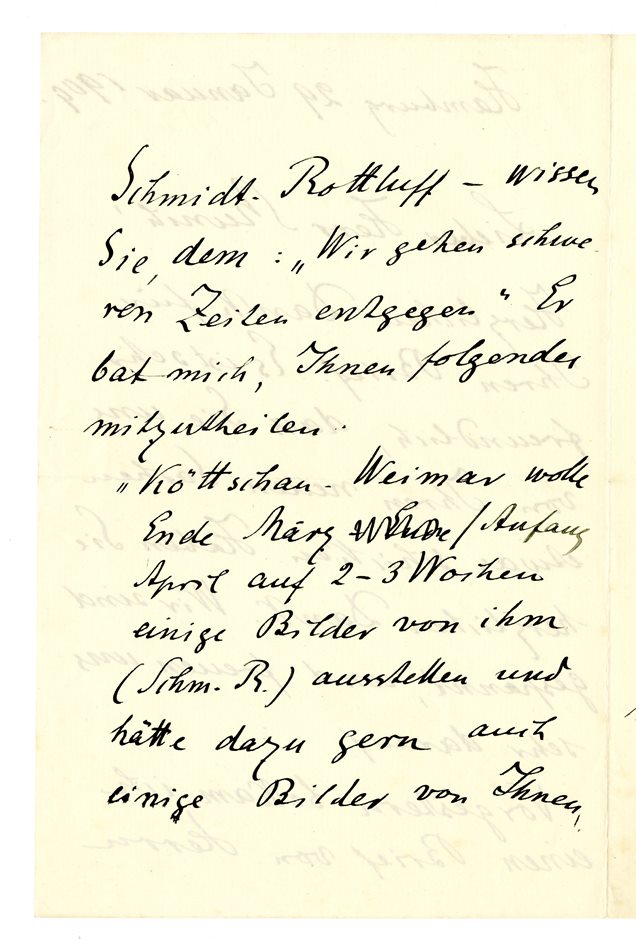 Schmidt-Rottluff – wissen
Sie, dem: „Wir gehen schwe
ren Zeiten entgegen“ Er
bat mich, Ihnen folgendes
mitzutheilen:
„Köttschau-Weimar wolle
Ende März / Anfang
April auf 2–3 Wochen
einige Bilder von ihm
(Schm. R.) ausstellen und
hätte dazu gern auch
einige Bilder von Ihnen,